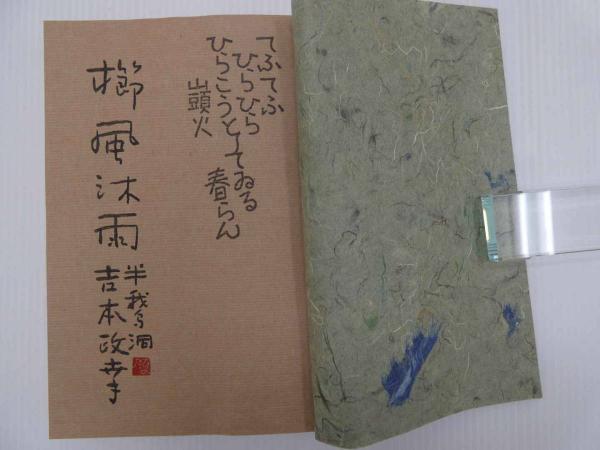 てふてふ
ひらひら
ひらこうとしてゐる
春らん
山頭火
櫛風沐雨
半我鳥洞
吉本政幸